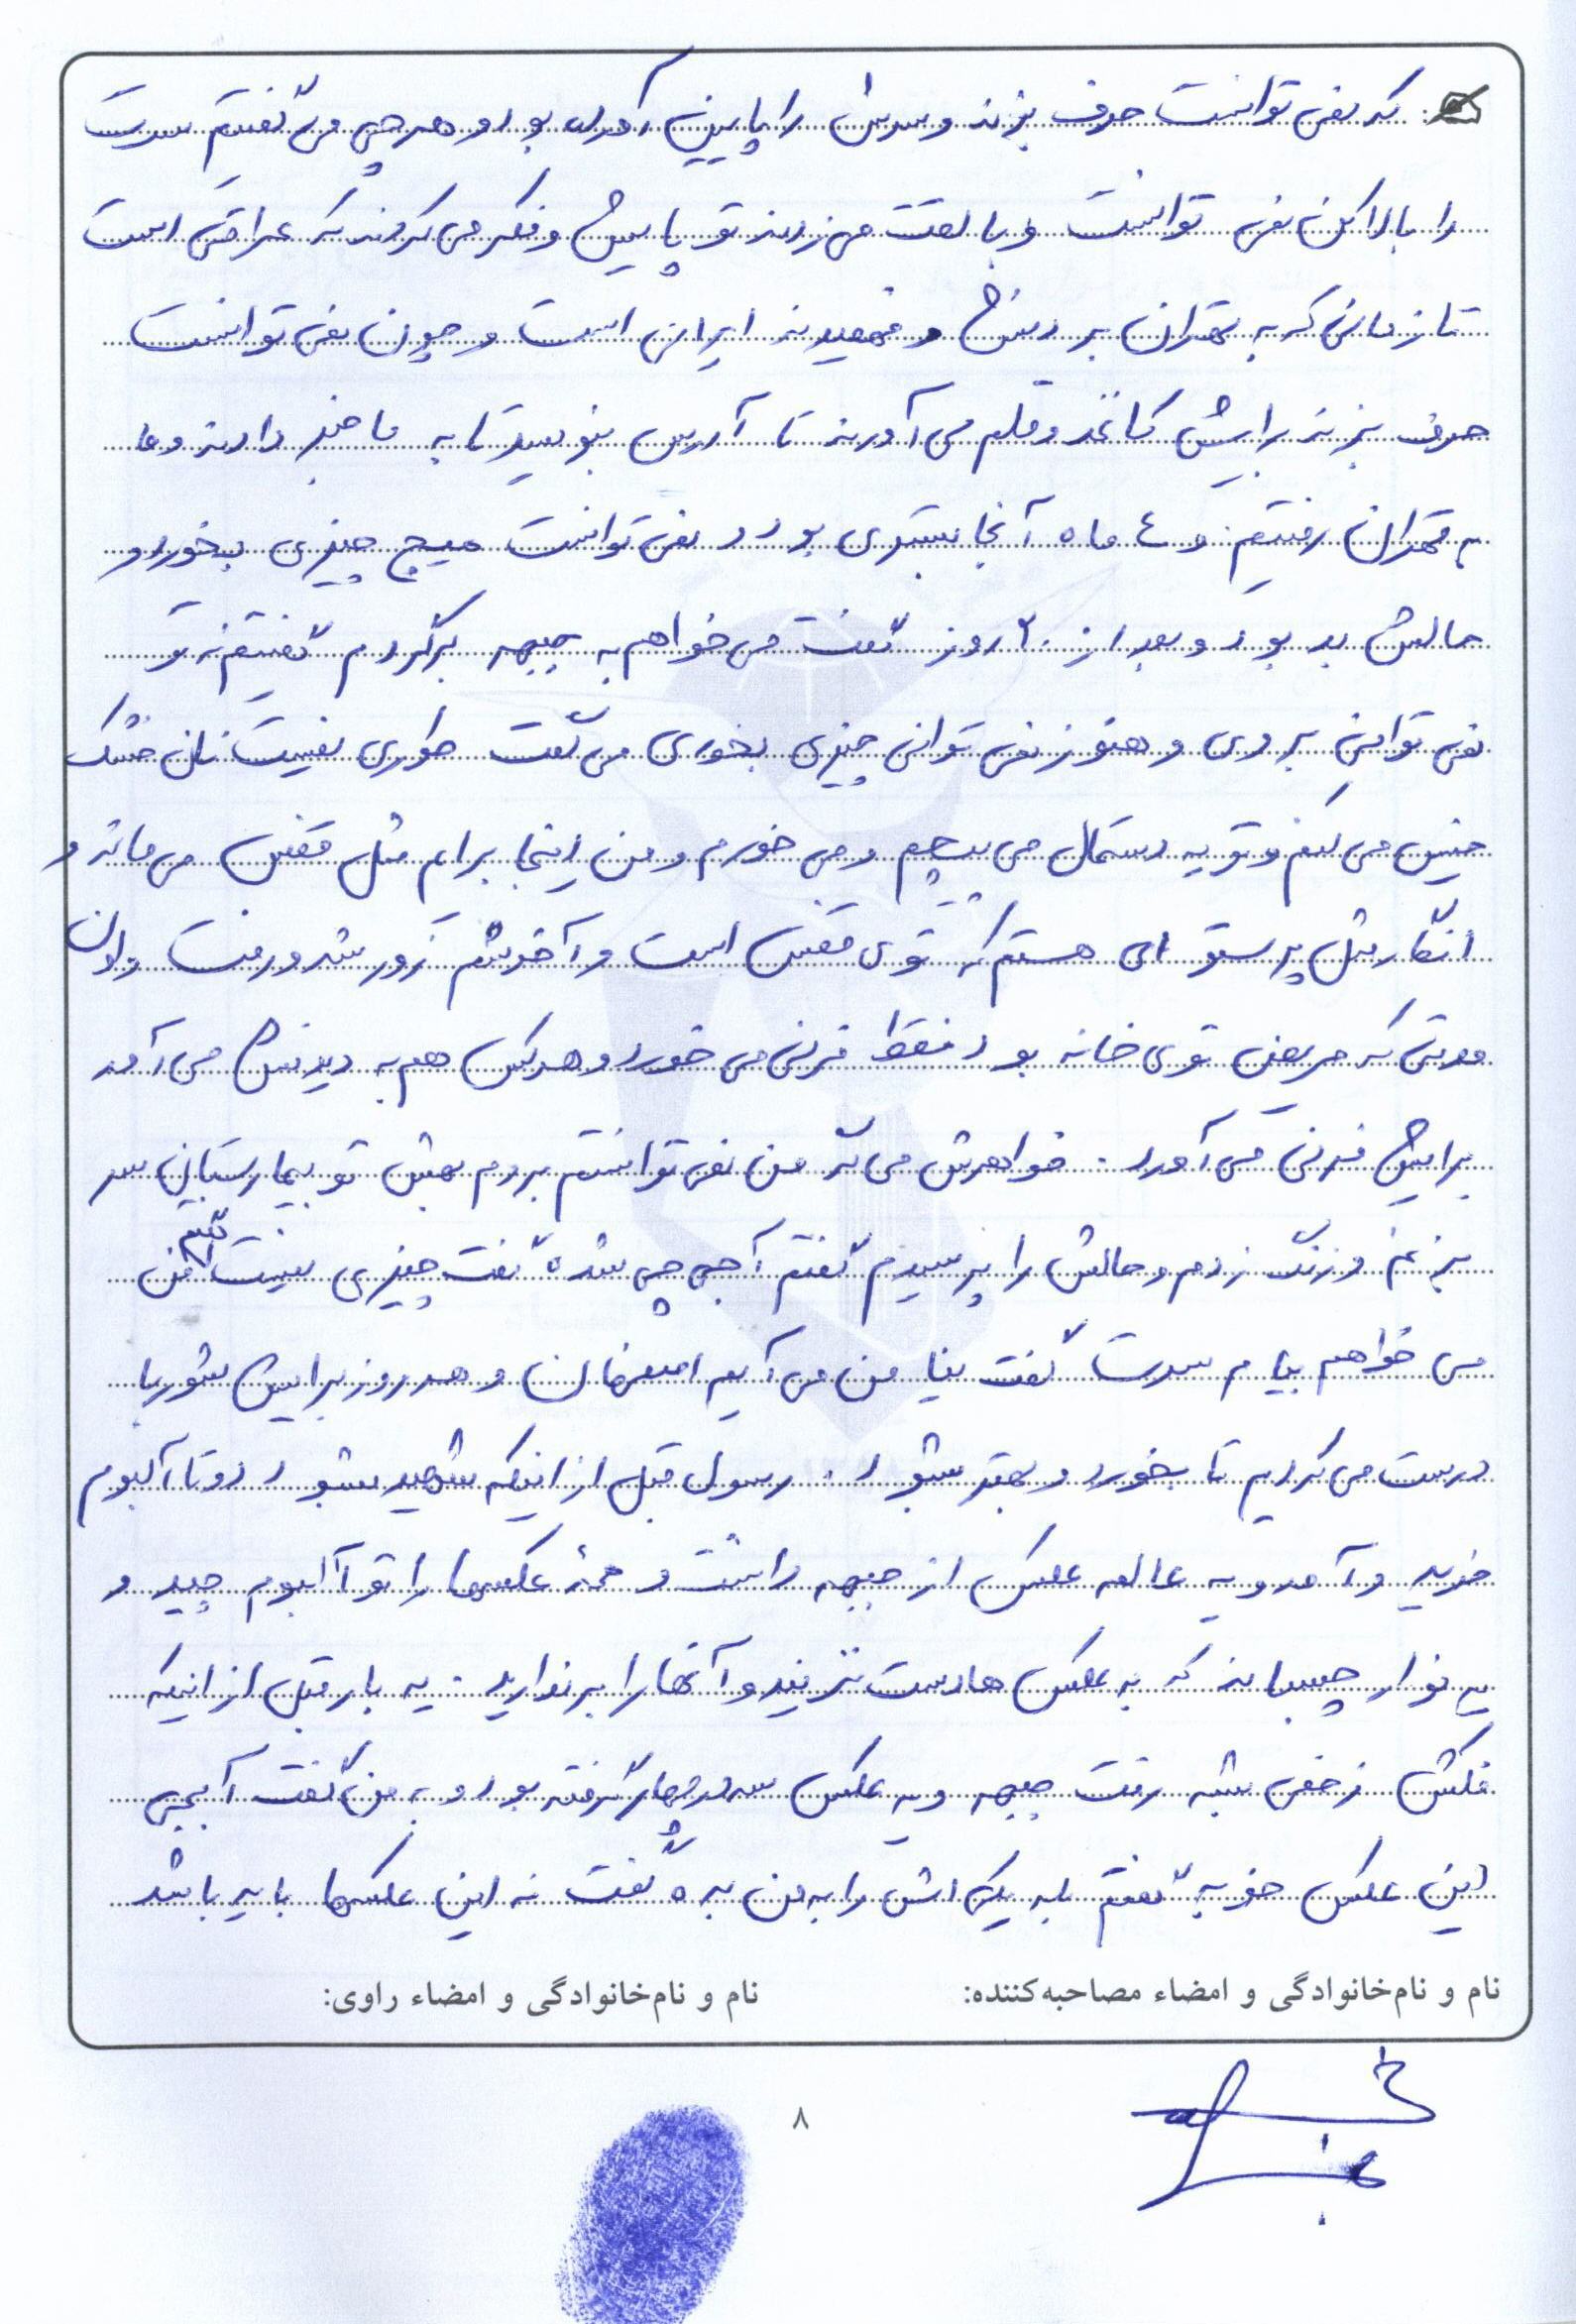 که نمی توانست حرف بزند و سرش را پایین آورده بود و هر چی می گفتیم سرت
را بالا کن نمی توانست و با لقت می زدند تو پایش و فکر می کردند که عراقی است
تا زمانی که به تهران بردنش و فهمیدند ایرانی است و چون نمی توانست
حرف بزند برایش کاغذ و قلم می آورند تا آدرس بنویسد تا به ما خبر دادند و ما
به تهران رفتیم و ٤ ماه آنجا بستری بود و نمی توانست هیچ چیزی بخورد و
حالش بد بود و بعد از ۲۰ روز گفت می خواهم به جبهه برگردم گفتیم نه تو
نمی توانی بروی و هنوز نمی توانی چیزی بخوری می گفت طوری نیست نان خشک
خیس می کنم و تو یه دستمال می پیچم و می خورم و من اینجا برام مثل قفس می ماند و
انگار مثل پرستو ای هستم که توی قفس است و آخرشم زور شد و رفت و اون
موقتی که مریض توی خانه بود فقط فرنی می خورد و هرکس هم به دیدنش می آمد
برایش فرنی می آورد . خواهرش می گه من نمی توانستم بروم بهش تو بیمارستان سر
بزنم و زنگ زدم و حالش را پرسیدم گفتم آجی چی شده گفت چیزی نیست گفتم من
می خواهم بیام سرت گفت نیا من می آیم اصفهان و هر روز برایش شوربا
درست می کردیم تا بخورد و بهتر بشود . رسول قبل از اینکه شهید بشود دو تا آلبوم
خرید و آمد و یه عالمه عکس از جبهه داشت و همهٔ عکسها را تو آلبوم چید و
یه نوار چسباند که به عکس ها دست نزنید و آنها را برندارید . یه بار قبل از اینکه
فکش زخمی بشه رفت جبهه و یه عکس سه در چهار گرفته بود و به من گفت آبجی
این عکس خوبه گفتم بله یکی اش را به من بده گفت نه این عکسها باید باشد
نام و نام‌خانوادگی و امضاء مصاحبه‌کننده: نام و نام‌خانوادگی و امضاء راوی:
۸